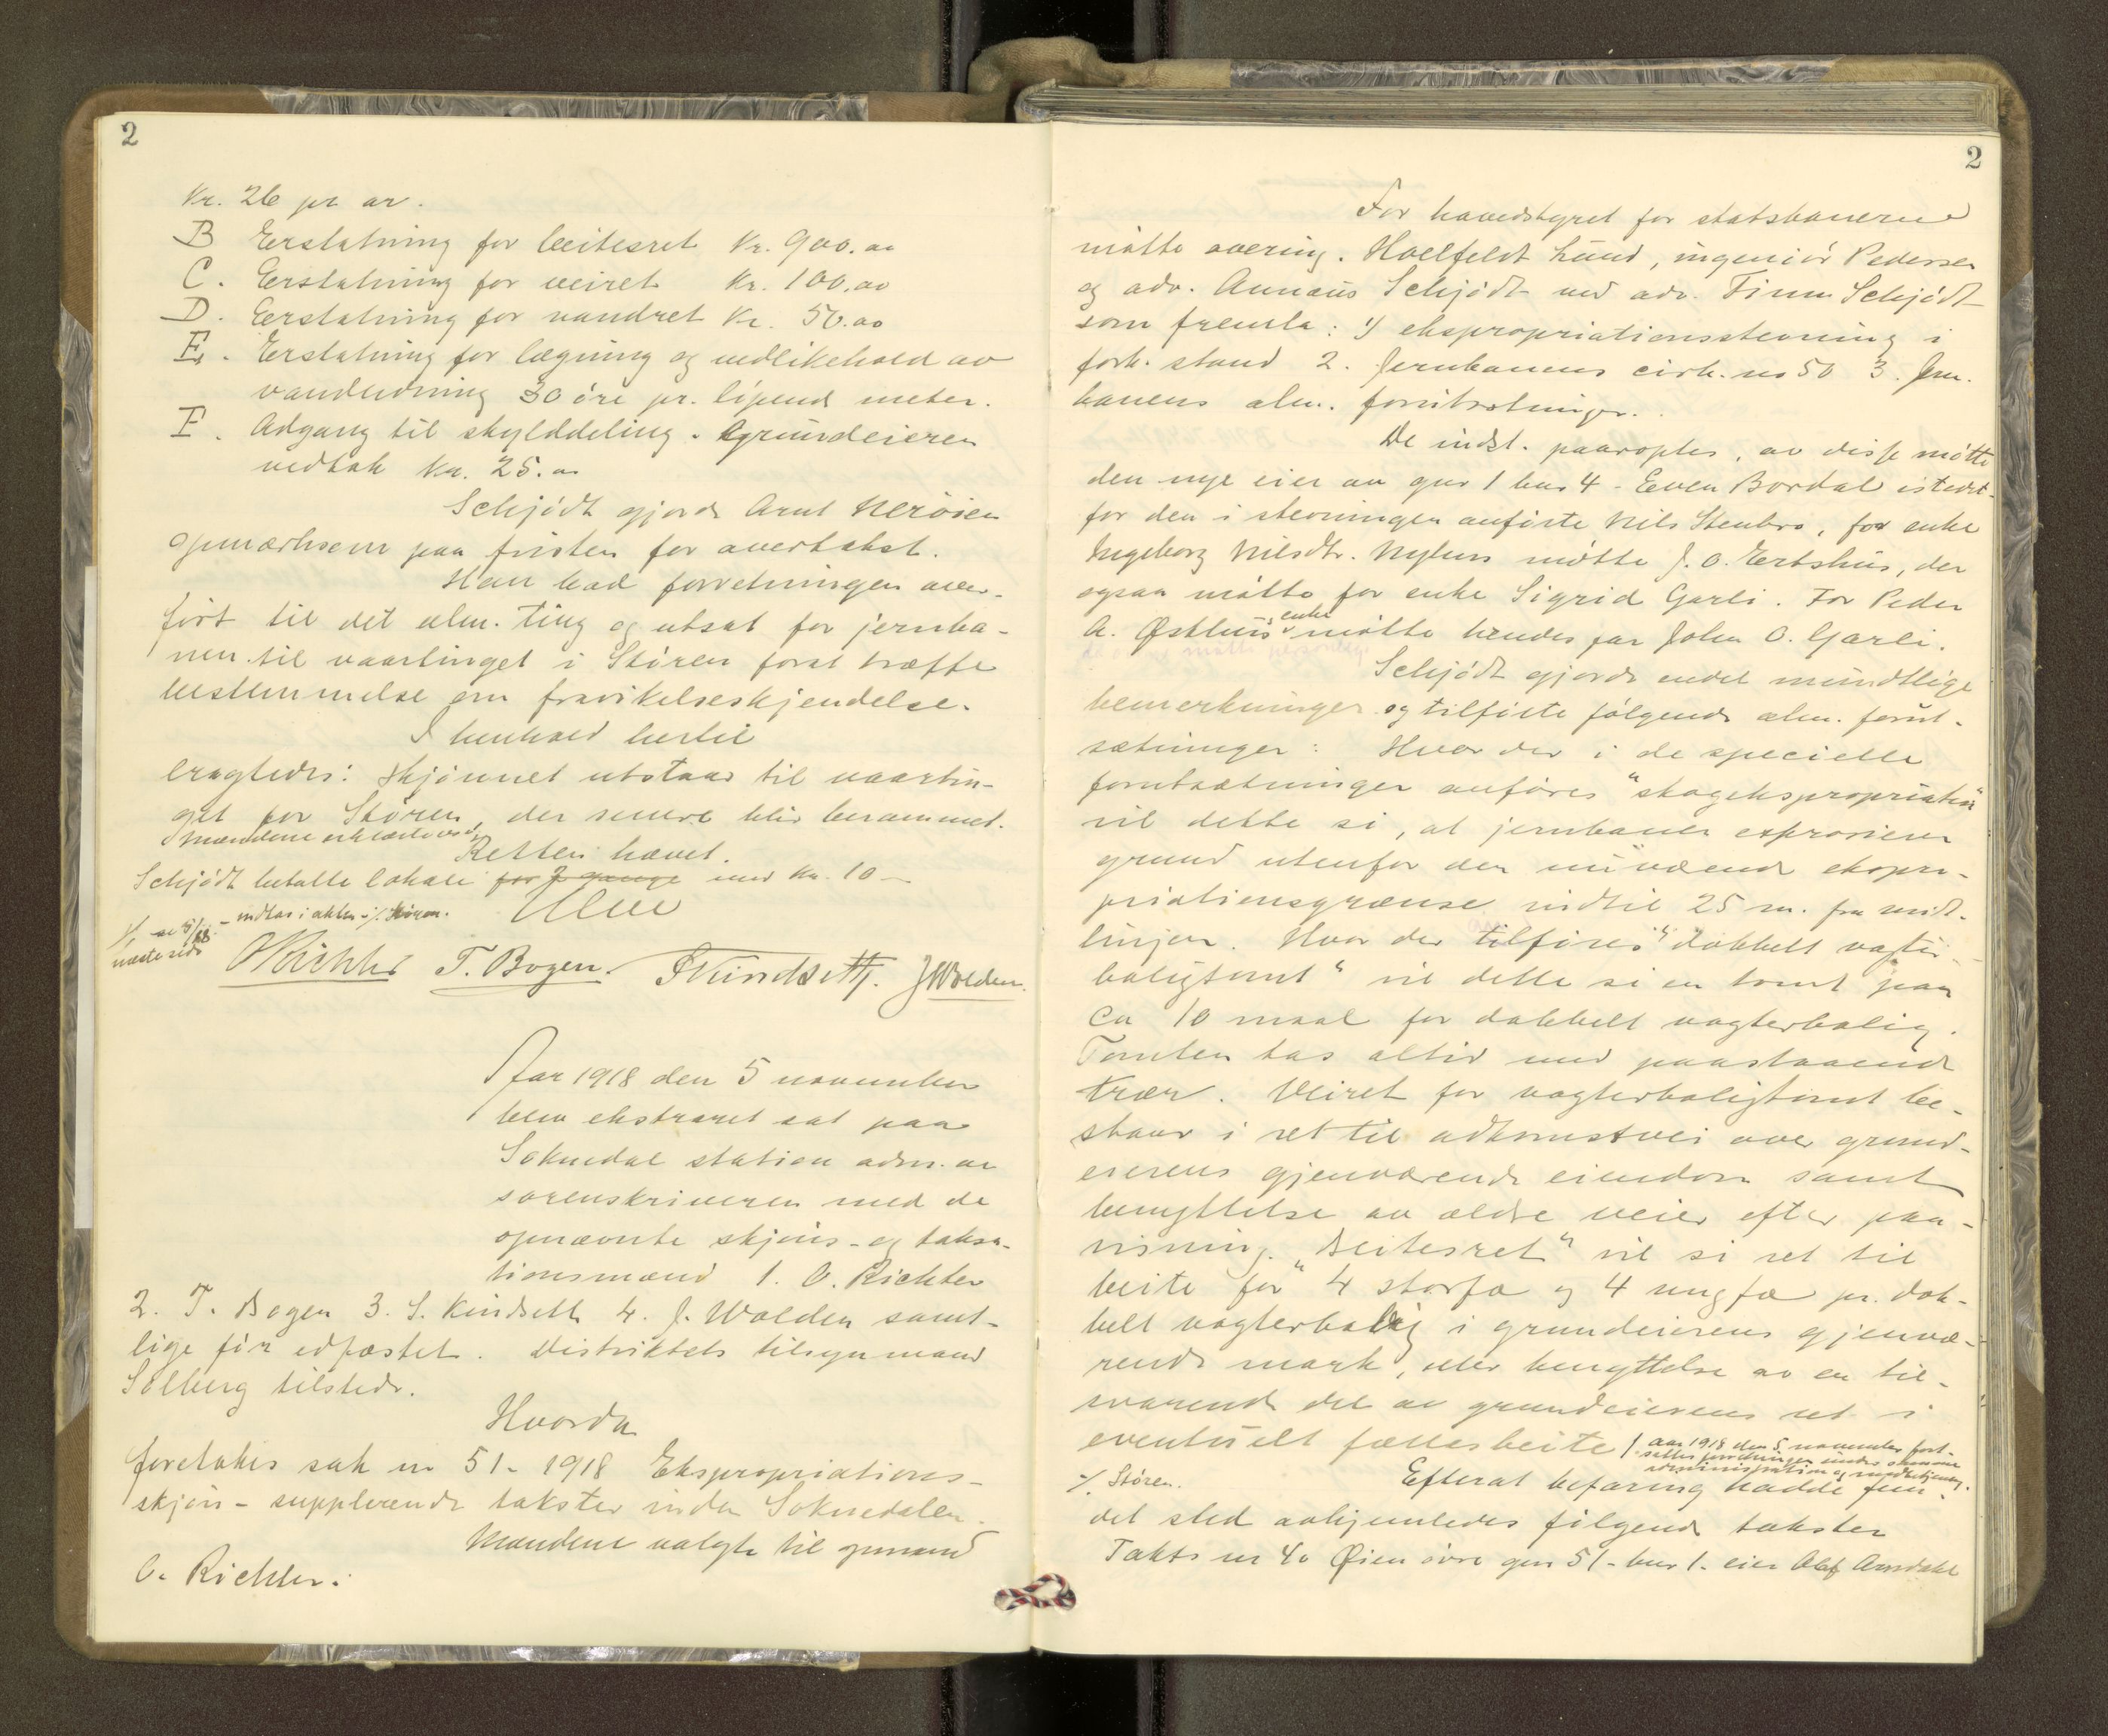 2
Kr. 26 pr ar.
B Erstatning for beitesret Kr. 900.00
C. Erstatning for veiret Kr. 100.00
D. Erstatning for vandret Kr. 50.00
E. Erstatning for lægning og vedlikehold av
vandledning 30 øre pr. løpend meter.
F. Adgang til skylddeling. Grundeieren
vedtok kr. 25.00
Schjødt gjorde Arnt Nerøien
opmærksom paa fristen for overtakst.
Han bad forretningen over-
ført til det alm. ting og utsat for jernba-
nen til vaartinget i Støren forat træffe
bestemmelse om fravikelseskjendelse.
I henhold hertil
eragtedes: Skjønnet utstaar til vaartin-
get for Støren, der senere blir berammet.
Mændene erklærte
Retten hævet.
Schjødt betalte lokale for 2 gange med kr. 10 -
1/ se 5/ - indtas i akten -/. Støren.
næste side
Ulve
O Richter T. Bogen. S Kindseth. J Wolden.
Aar 1918 den 5 november
blev ekstraret sat paa
Soknedal station adm. av
sorenskriveren med de
opnævnte skjøns- og taksa-
tionsmænd 1. O. Richter
2. T. Bogen 3. S. Kindseth 4. J. Wolden samt-
lige før edfæstet. Distriktets tilsynmand
Solberg tilstede.
Hvorda
foretokes sak nr 51-1918 Ekspropriations-
skjøn - supplerende takster inden Soknedalen.
Mændene valgte til opmand
O. Richter.
2
For hovedstyret for statsbanerne
møtte overing. Hoelfeldt Lund, ingeniør Pedersen
og adv. Annæus Schjødt ved adv. Finn Schjødt
som fremla: 1) ekspropriationsstevning i
fork. stand 2. Jernbanens cirk. no 50 3. Jern.
banens alm. forutsætninger.
De indst. paaroptes, av disse møtte
den nye eier av gnr 1 bnr 4 - Even Bordal istedet-
for den i stevningen anførte Nils Stenbro, for enke
Ingeborg Nilsdtr. Nyhus møtte J. O. Ertshus, der
ogsaa møtte for enke Sigrid Garli. For Peder
A. Østhus enke møtte hendes far John O. Garli.
Schjødt gjorde endel mundtlige
bemerkninger og tilførte følgende alm. forut-
sætninger: Hvor der i de specielle
forutsætninger anføres "skogekspropriation"
vil dette si, at jernbanen
grund utenfor den nuværende ekspro-
priationsgrænse indtil 25 m. fra midt-
linjen. Hvor der tilføres "dobbelt vogter-
boligtomt" vil dette si en tomt paa
ca 10 maal for dobbelt vogterbolig.
Tomten tas altid med paastaaende
trær. Veiret for vogterboligtomt be-
staar i ret til adkomstvei over grund-
eierens gjenværende eiendom samt
benyttelse av ældre veier efter paa-
visning. "Beitesret" vil si ret til
beite for 4 storfæ og 4 ungfæ pr. dob-
belt vogterbolig i grundeierens gjenvæ-
rende mark, eller benyttelse av en til-
svarende del av grundeierens ret i
eventuelt fællesbeite / Aar 1918 den 5. november fort-
sattes forretningen under samme
administration og medbetjening.
-/. Støren.
Efterat befaring hadde fun-
det sted avhjemledes følgende takster
Takst nr 40 Øien øvre gnr 51 - bnr 1. eier Olaf Amdahl